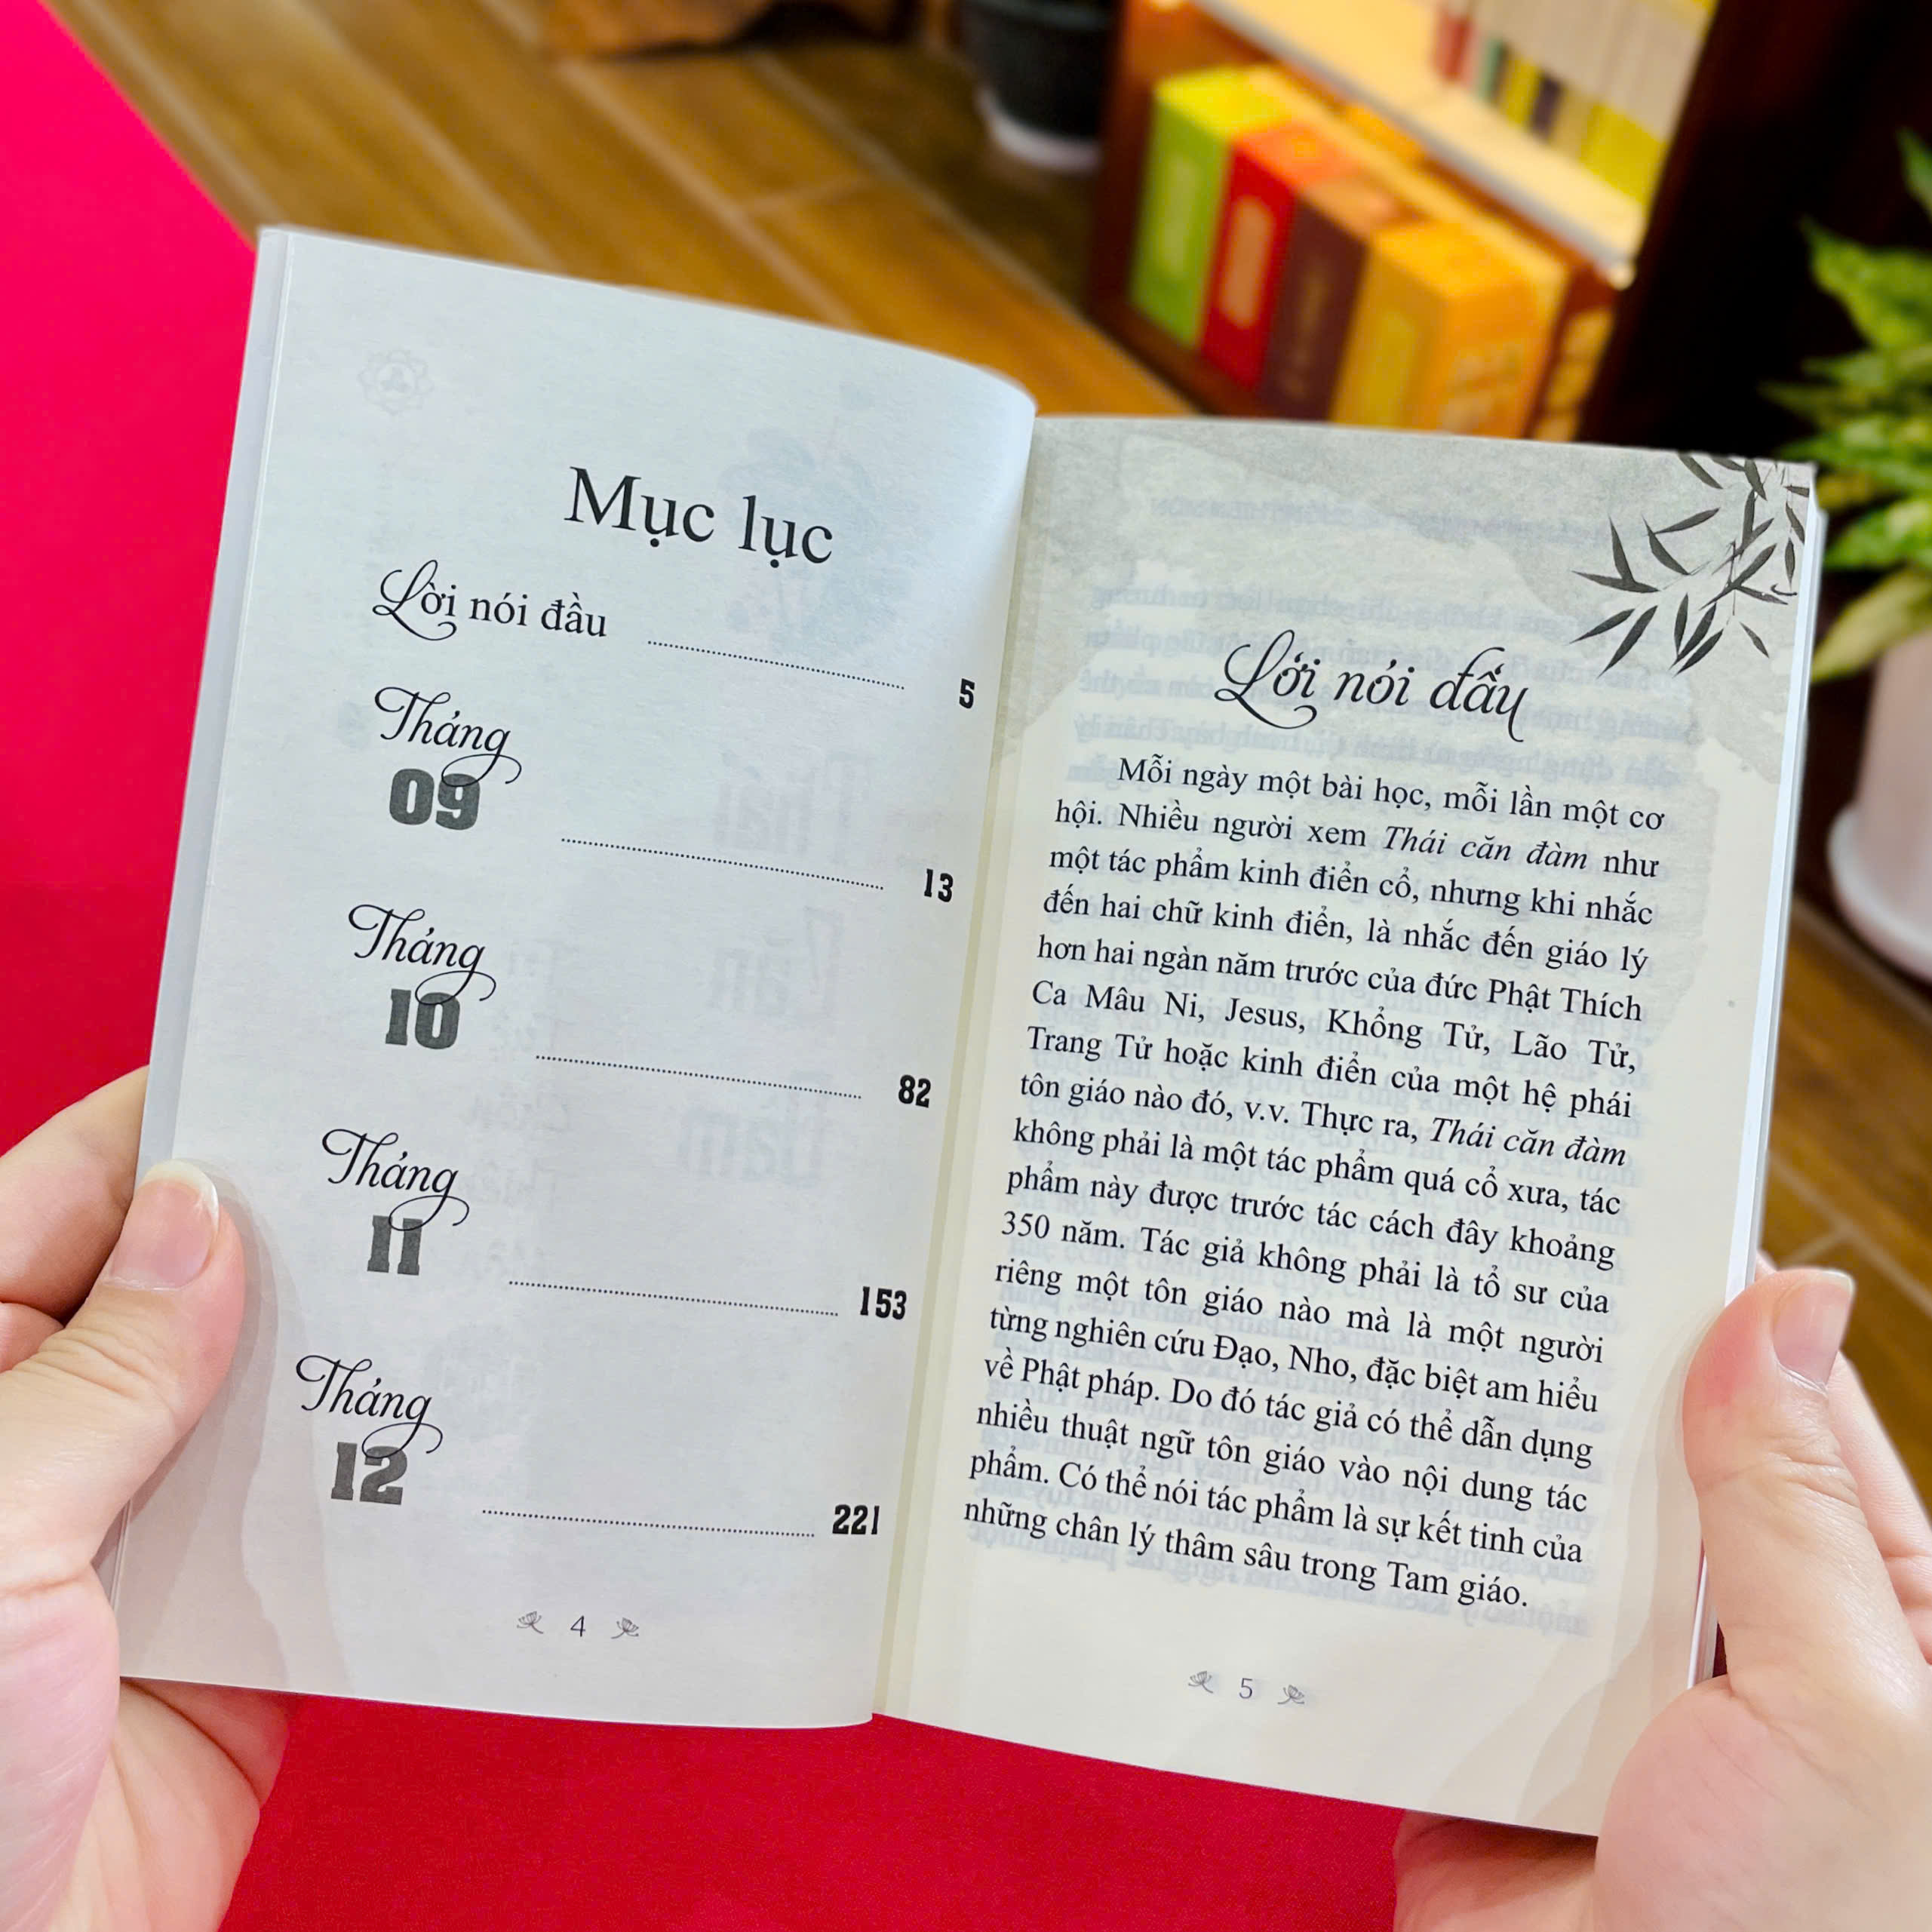 Mục lục
Lời nói đầu 5
Tháng
09 13
Tháng
10 82
Tháng
11 153
Tháng
12 221
4
Lời nói đầu
Mỗi ngày một bài học, mỗi lần một cơ
hội. Nhiều người xem Thái căn đàm như
một tác phẩm kinh điển cổ, nhưng khi nhắc
đến hai chữ kinh điển, là nhắc đến giáo lý
hơn hai ngàn năm trước của đức Phật Thích
Ca Mâu Ni, Jesus, Khổng Tử, Lão Tử,
Trang Tử hoặc kinh điển của một hệ phái
tôn giáo nào đó, v.v. Thực ra, Thái căn đàm
không phải là một tác phẩm quá cổ xưa, tác
phẩm này được trước tác cách đây khoảng
350 năm. Tác giả không phải là tổ sư của
riêng một tôn giáo nào mà là một người
từng nghiên cứu Đạo, Nho, đặc biệt am hiểu
về Phật pháp. Do đó tác giả có thể dẫn dụng
nhiều thuật ngữ tôn giáo vào nội dung tác
phẩm. Có thể nói tác phẩm là sự kết tinh của
những chân lý thâm sâu trong Tam giáo.
5